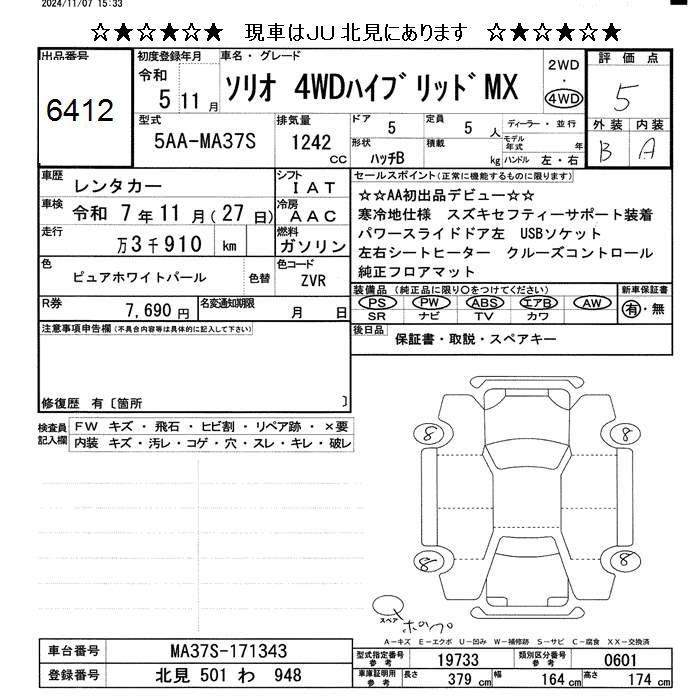 2024/11/07 15:33
☆★☆★☆★ 現車はJU北見にあります ☆★☆★☆★
出品番号
6412
初度登録年月
令和
5 11 月
車名・グレード
ソリオ 4WDハイブリッドMX
2WD
・
4WD
評価点
5
外装 内装
B A
型式
5AA-MA37S
排気量
1242
CC
ドア
5
定員
5 人
形状
ハッチB
積載
kg
ディーラー・並行
モデル年式
年
ハンドル 左・右
車歴
レンタカー
シフト
IAT
車検
令和 7年11月(27日)
冷房
AAC
走行
万3千910 km
燃料
ガソリン
色
ピュアホワイトパール
色替
色コード
ZVR
R券
7,690円
名変通知期限
月 日
セールスポイント(正常に機能するものに限ります)
☆☆AA初出品デビュー☆☆
寒冷地仕様 スズキセフティーサポート装着
パワースライドドア左 USBソケット
左右シートヒーター クルーズコントロール
純正フロアマット
装備品 (純正品に限り○をつけてください)
PS PW ABS エアB AW
SR ナビ TV カワ
新車保証書
有・無
後日品
保証書・取説・スペアキー
注意事項申告欄(不具合内容等は具体的に記入して下さい)
修復歴 有〔箇所 〕
検査員記入欄
FW キズ・飛石・ヒビ割・リペア跡・×要
内装 キズ・汚レ・コゲ・穴・スレ・キレ・破レ
8
8
8
8
スペア
A-キズ E-エクボ U-凹み W-補修跡 S-サビ C-腐食 XX-交換済
車台番号
MA37S-171343
登録番号
北見 501 わ 948
型式指定番号
参考
19733
類別区分番号
参考
0601
車庫証明用
参考
長さ
379 cm
幅
164 cm
高さ
174 cm